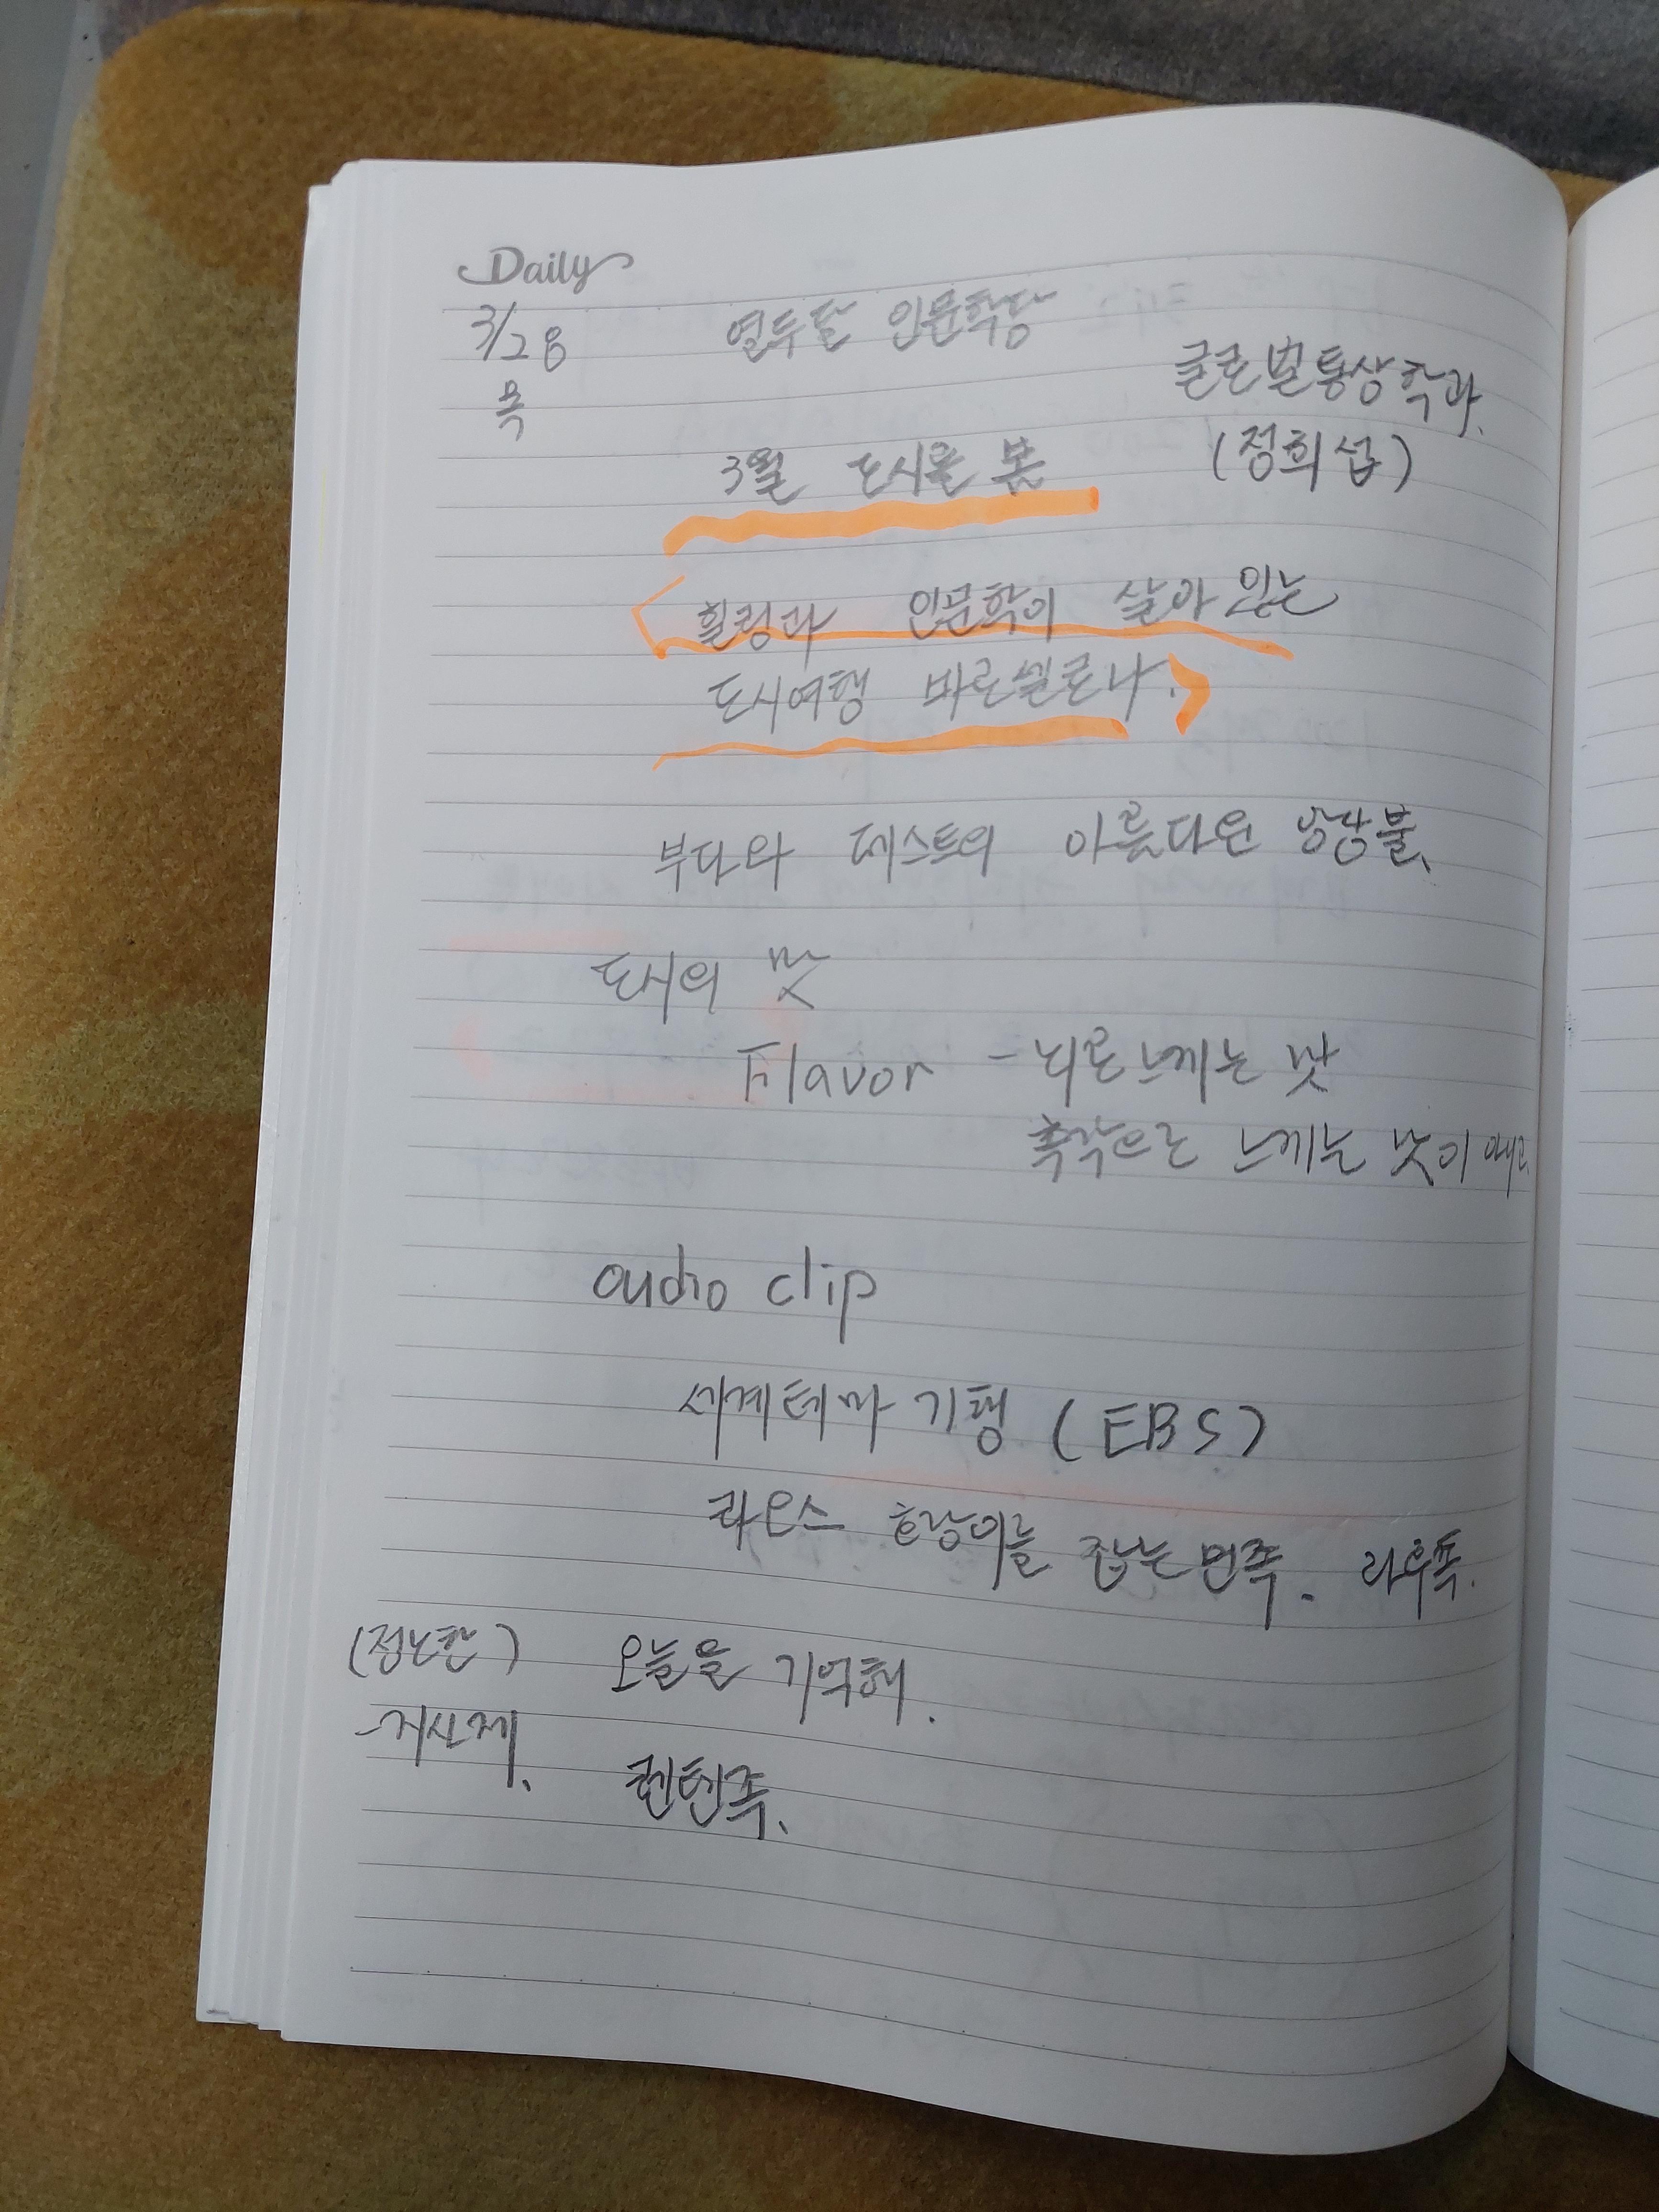 Daily
3/28
목
열두달 인문학당
글로벌통상학과.
(정희섭)
3월 도시를 봄
힐링과 인문학이 살아 있는
도시여행 바르셀로나.
부다와 페스트의 아름다운 앙상블.
도시의 맛
Flavor - 뇌로 느끼는 맛
촉각으로 느끼는 맛이
audio clip
세계테마 기행 (EBS)
라오스 호랑이를 잡는 민족. 라후족.
오늘을 기억해.
렌텐족.